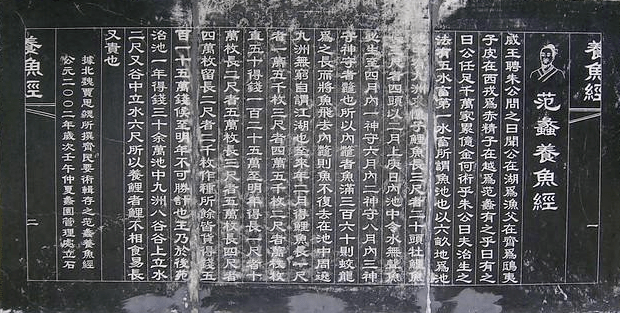 養魚經
一
范蠡養魚經
威王聘朱公問之曰聞公在湖爲漁父在齊爲鴟夷
子皮在西戎爲赤精子在越爲范蠡有之乎曰有之
曰公任足千萬家累億金何術乎朱公曰夫治生之
法有五水畜第一水畜所謂魚池也以六畝地爲池
池中有九洲求懷子鯉魚長三尺者二十頭牡鯉魚
長三尺者四頭以二月上庚日內池中令水無聲魚
必生至四月內一神守六月內二神守八月內三神
守神守者鼈也所以內鼈者魚滿三百六十則蛟龍
爲之長而將魚飛去內鼈則魚不復去在池中周遶
九洲無窮自謂江湖也至來年二月得鯉魚長一尺
者一萬五千枚三尺者四萬五千枚二尺者萬枚枚
直五十得錢一百二十五萬至明年得長一尺者十
萬枚長二尺者五萬枚長三尺者五萬枚長四尺者
四萬枚留長二尺者二千枚作種所餘皆貨得錢五
百一十五萬錢候至明年不可勝計也王乃於後苑
治池一年得錢三十余萬池中九洲八谷谷上立水
二尺又谷中立水六尺所以養鯉者鯉不相食易長
又貴也
據北魏賈思勰所撰齊民要術輯存之范蠡養魚經
公元二〇〇二年歲次壬午仲夏蠡園管理處立石
養魚經
二